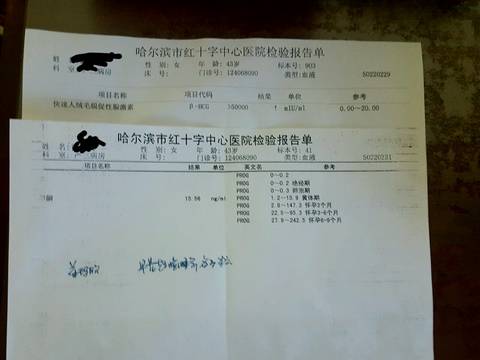 哈尔滨市红十字中心医院检验报告单
姓 性 别: 女 年 龄: 43岁 标本号: 903
科 室 病房 床 号: 门诊号: 124068090 类型: 血液 SO220229
项目名称 项目代码 结果 单位 参考
快速人绒毛膜促性腺激素 β-HCG >50000 ↑ mIU/ml 0.00-20.00
哈尔滨市红十字中心医院检验报告单
姓 名: 性 别: 女 年 龄: 43岁 标本号: 41
科 病房 床 号: 门诊号: 124068090 类型: 血液 SO220231
项目名称 结果 单位 英文名 参考
PROG 0~0.2
PROG 0~0.2 绝经期
PROG 0~0.3 卵泡期
酮 15.56 ng/ml PROG 1.2~15.9 黄体期
PROG 2.8~147.3 怀孕3个月
PROG 22.5~95.3 怀孕3-6个月
PROG 27.9~242.5 怀孕6-9个月